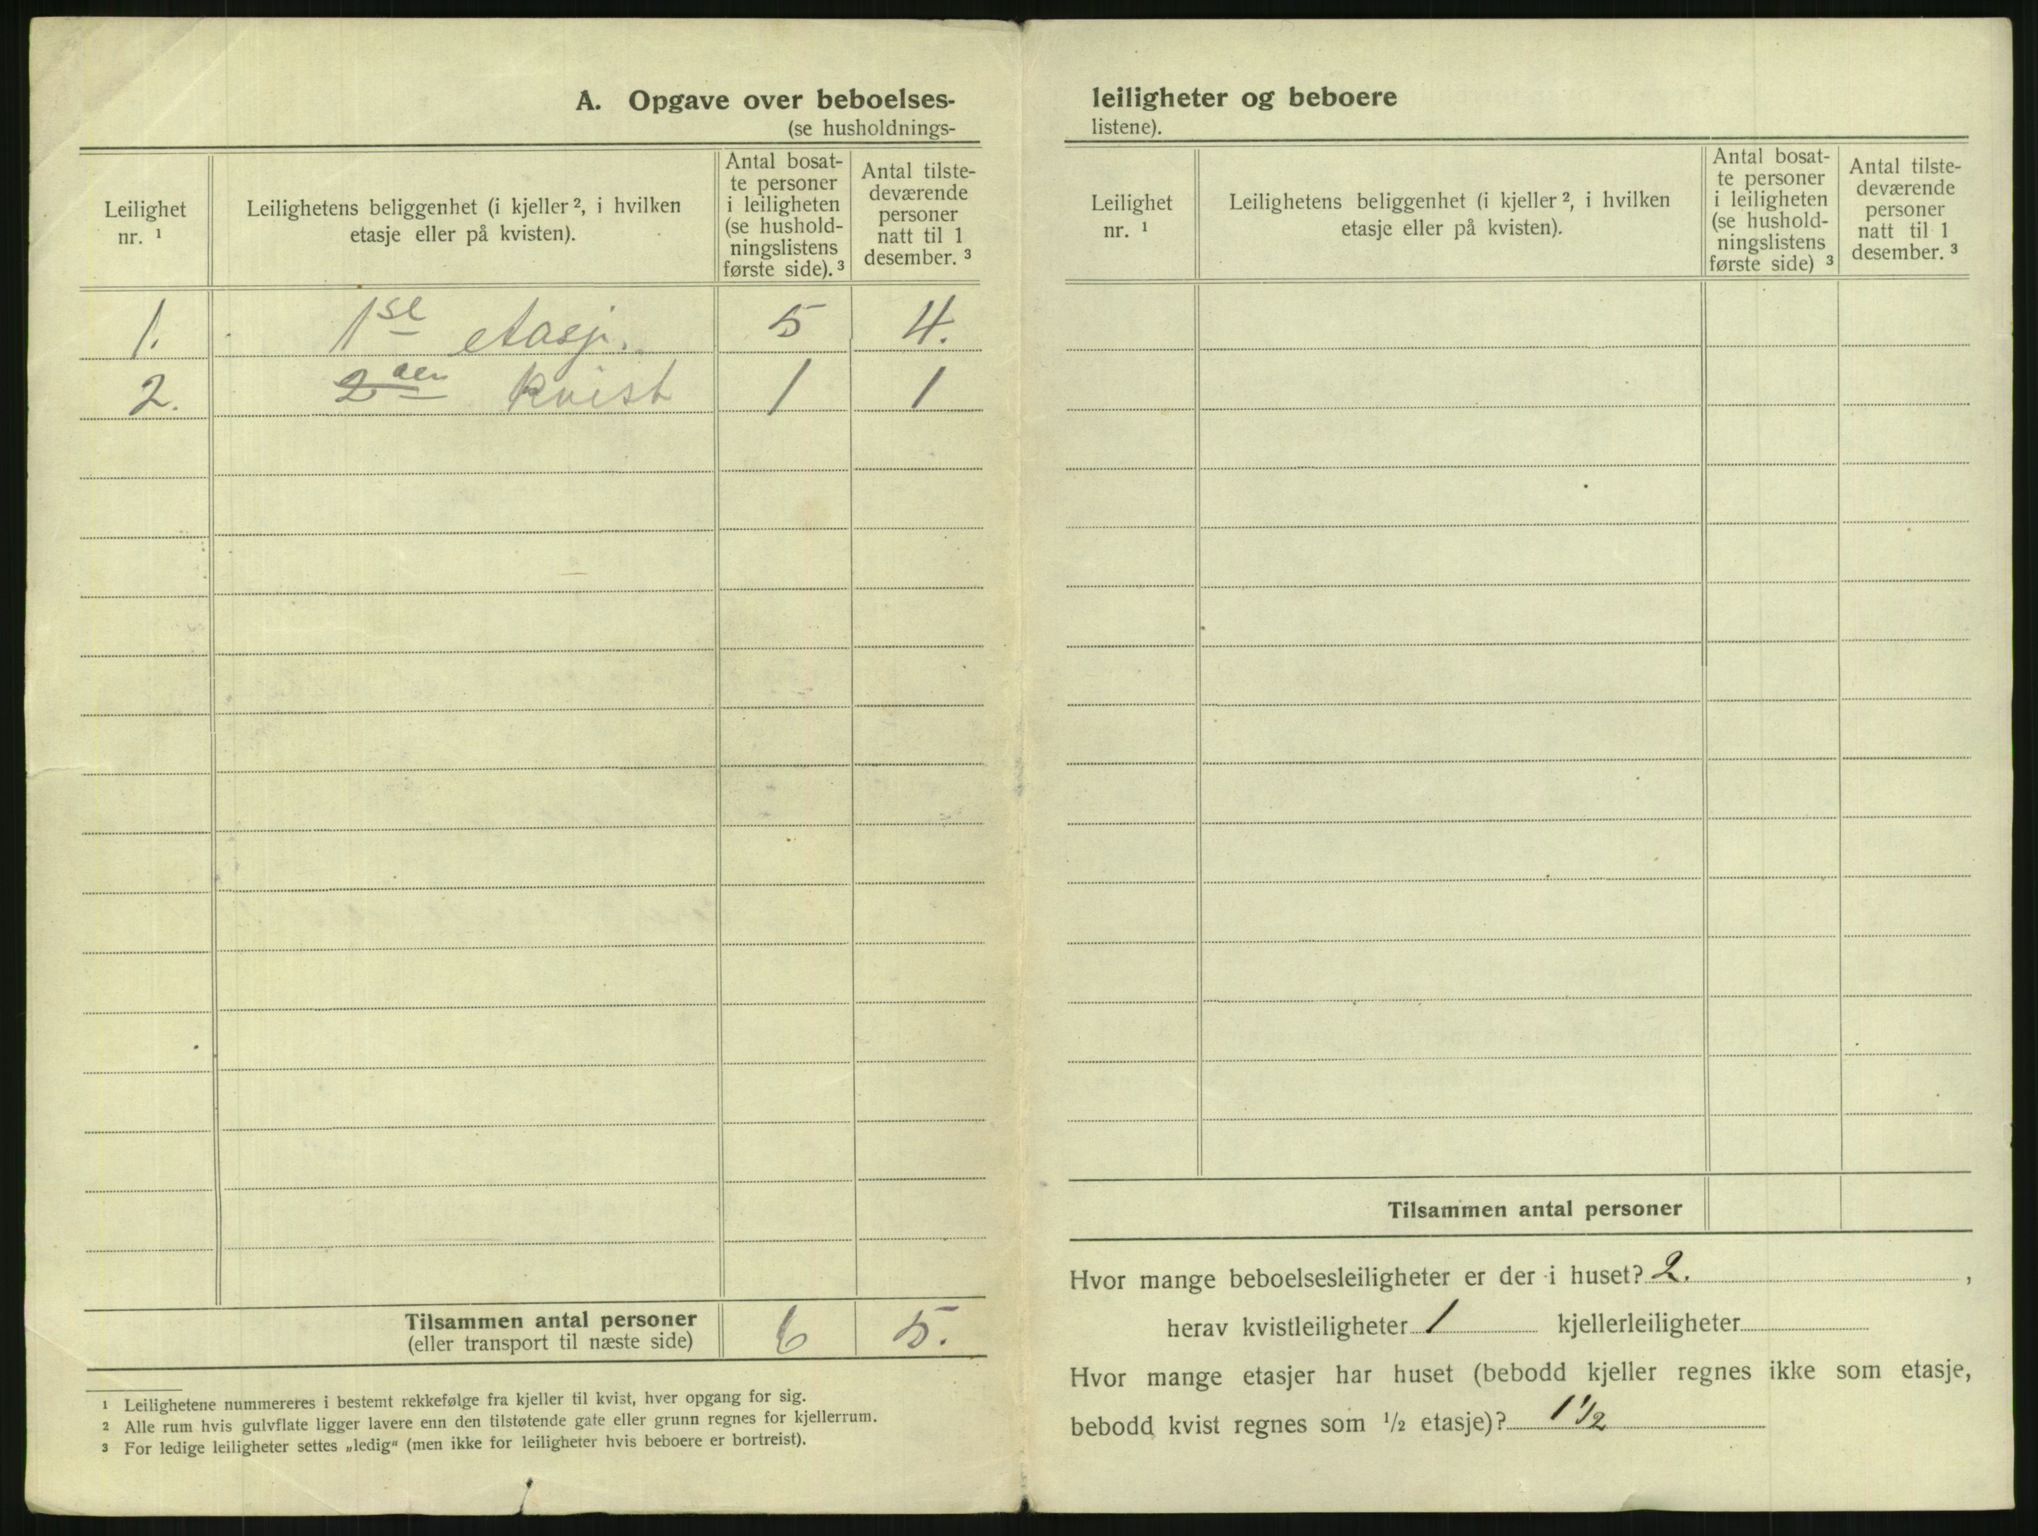 A. Opgave over beboelses-
(se husholdnings-
Leilighet
nr. ¹
Leilighetens beliggenhet (i kjeller ², i hvilken
etasje eller på kvisten).
Antal bosat-
te personer
i leiligheten
(se hushold-
ningslistens
første side). ³
Antal tilste-
deværende
personer
natt til 1
desember. ³
1. 1ste etasje. 5 4.
2. 2den kvist 1 1
Tilsammen antal personer
(eller transport til næste side)
6 5.
¹ Leilighetene nummereres i bestemt rekkefølge fra kjeller til kvist, hver opgang for sig.
² Alle rum hvis gulvflate ligger lavere enn den tilstøtende gate eller grunn regnes for kjellerrum.
³ For ledige leiligheter settes „ledig“ (men ikke for leiligheter hvis beboere er bortreist).
leiligheter og beboere
listene).
Leilighet
nr. ¹
Leilighetens beliggenhet (i kjeller ², i hvilken
etasje eller på kvisten).
Antal bosat-
te personer
i leiligheten
(se hushold-
ningslistens
første side) ³
Antal tilste-
deværende
personer
natt til 1
desember. ³
Tilsammen antal personer
Hvor mange beboelsesleiligheter er der i huset? 2. ,
herav kvistleiligheter 1 kjellerleiligheter
Hvor mange etasjer har huset (bebodd kjeller regnes ikke som etasje,
bebodd kvist regnes som ¹/₂ etasje)? 1 1/2